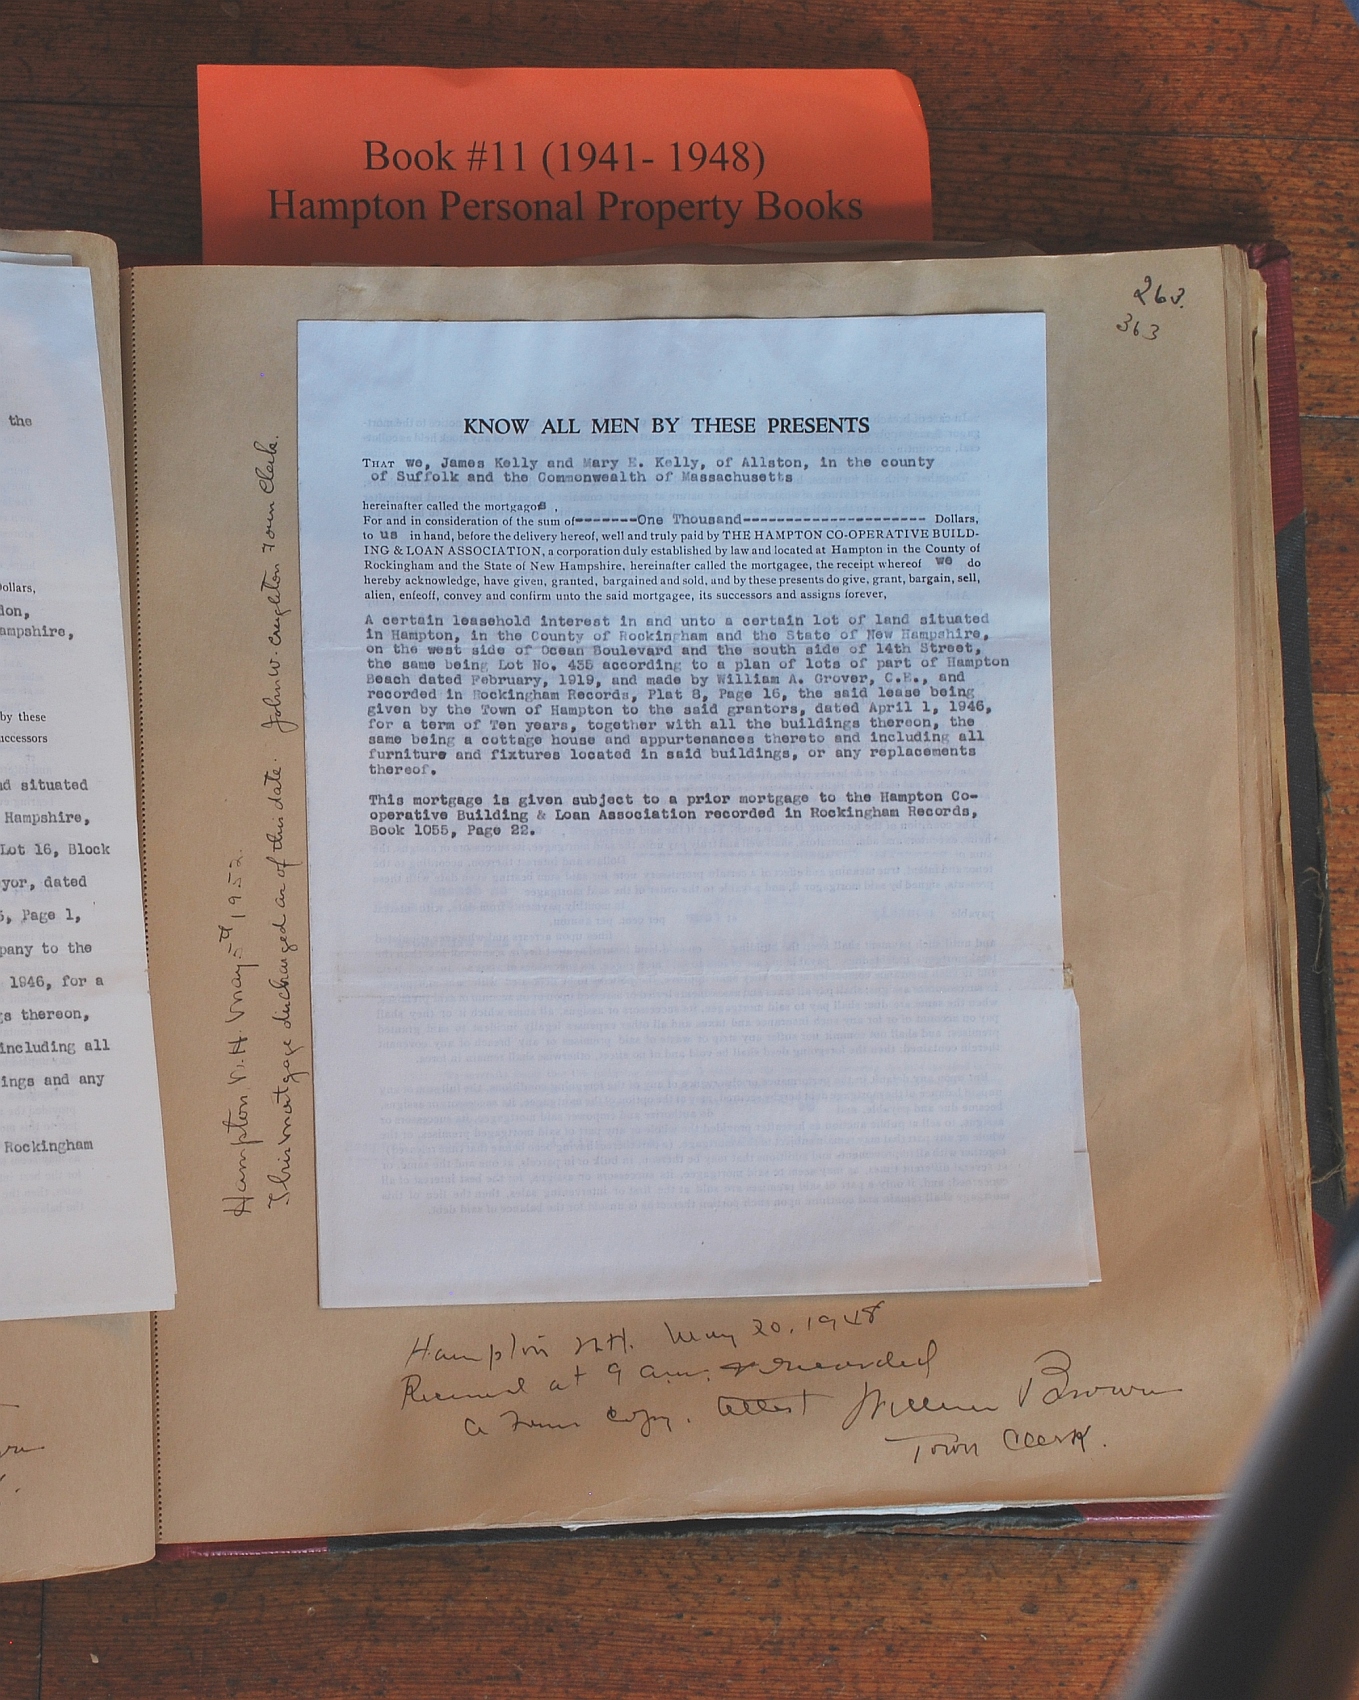 Book #11 (1941- 1948)
Hampton Personal Property Books
263.
363
KNOW ALL MEN BY THESE PRESENTS
THAT we, James Kelly and Mary E. Kelly, of Allston, in the county
of Suffolk and the Commonwealth of Massachusetts
hereinafter called the mortgagors ,
For and in consideration of the sum of-------One Thousand--------------------- Dollars,
to us in hand, before the delivery hereof, well and truly paid by THE HAMPTON CO-OPERATIVE BUILD-
ING & LOAN ASSOCIATION, a corporation duly established by law and located at Hampton in the County of
Rockingham and the State of New Hampshire, hereinafter called the mortgagee, the receipt whereof we do
hereby acknowledge, have given, granted, bargained and sold, and by these presents do give, grant, bargain, sell,
alien, enfeoff, convey and confirm unto the said mortgagee, its successors and assigns forever,
A certain leasehold interest in and unto a certain lot of land situated
in Hampton, in the County of Rockingham and the State of New Hampshire,
on the west side of Ocean Boulevard and the south side of 14th Street,
the same being Lot No. 435 according to a plan of lots of part of Hampton
Beach dated February, 1919, and made by William A. Grover, C.E., and
recorded in Rockingham Records, Plat 8, Page 16, the said lease being
given by the Town of Hampton to the said grantors, dated April 1, 1946,
for a term of Ten years, together with all the buildings thereon, the
same being a cottage house and appurtenances thereto and including all
furniture and fixtures located in said buildings, or any replacements
thereof.
This mortgage is given subject to a prior mortgage to the Hampton Co-
operative Building & Loan Association recorded in Rockingham Records,
Book 1055, Page 22.
Hampton N.H. May 5th 1952.
This mortgage discharged as of this date. John W. Creighton Town Clerk.
Hampton N.H. May 20, 1948
Received at 9 a.m. & recorded
a True Copy. Attest William Brown
Town Clerk.
the
Dollars,
don,
ampshire,
by these
uccessors
nd situated
Hampshire,
Lot 16, Block
yor, dated
5, Page 1,
pany to the
1946, for a
gs thereon,
including all
ings and any
Rockingham